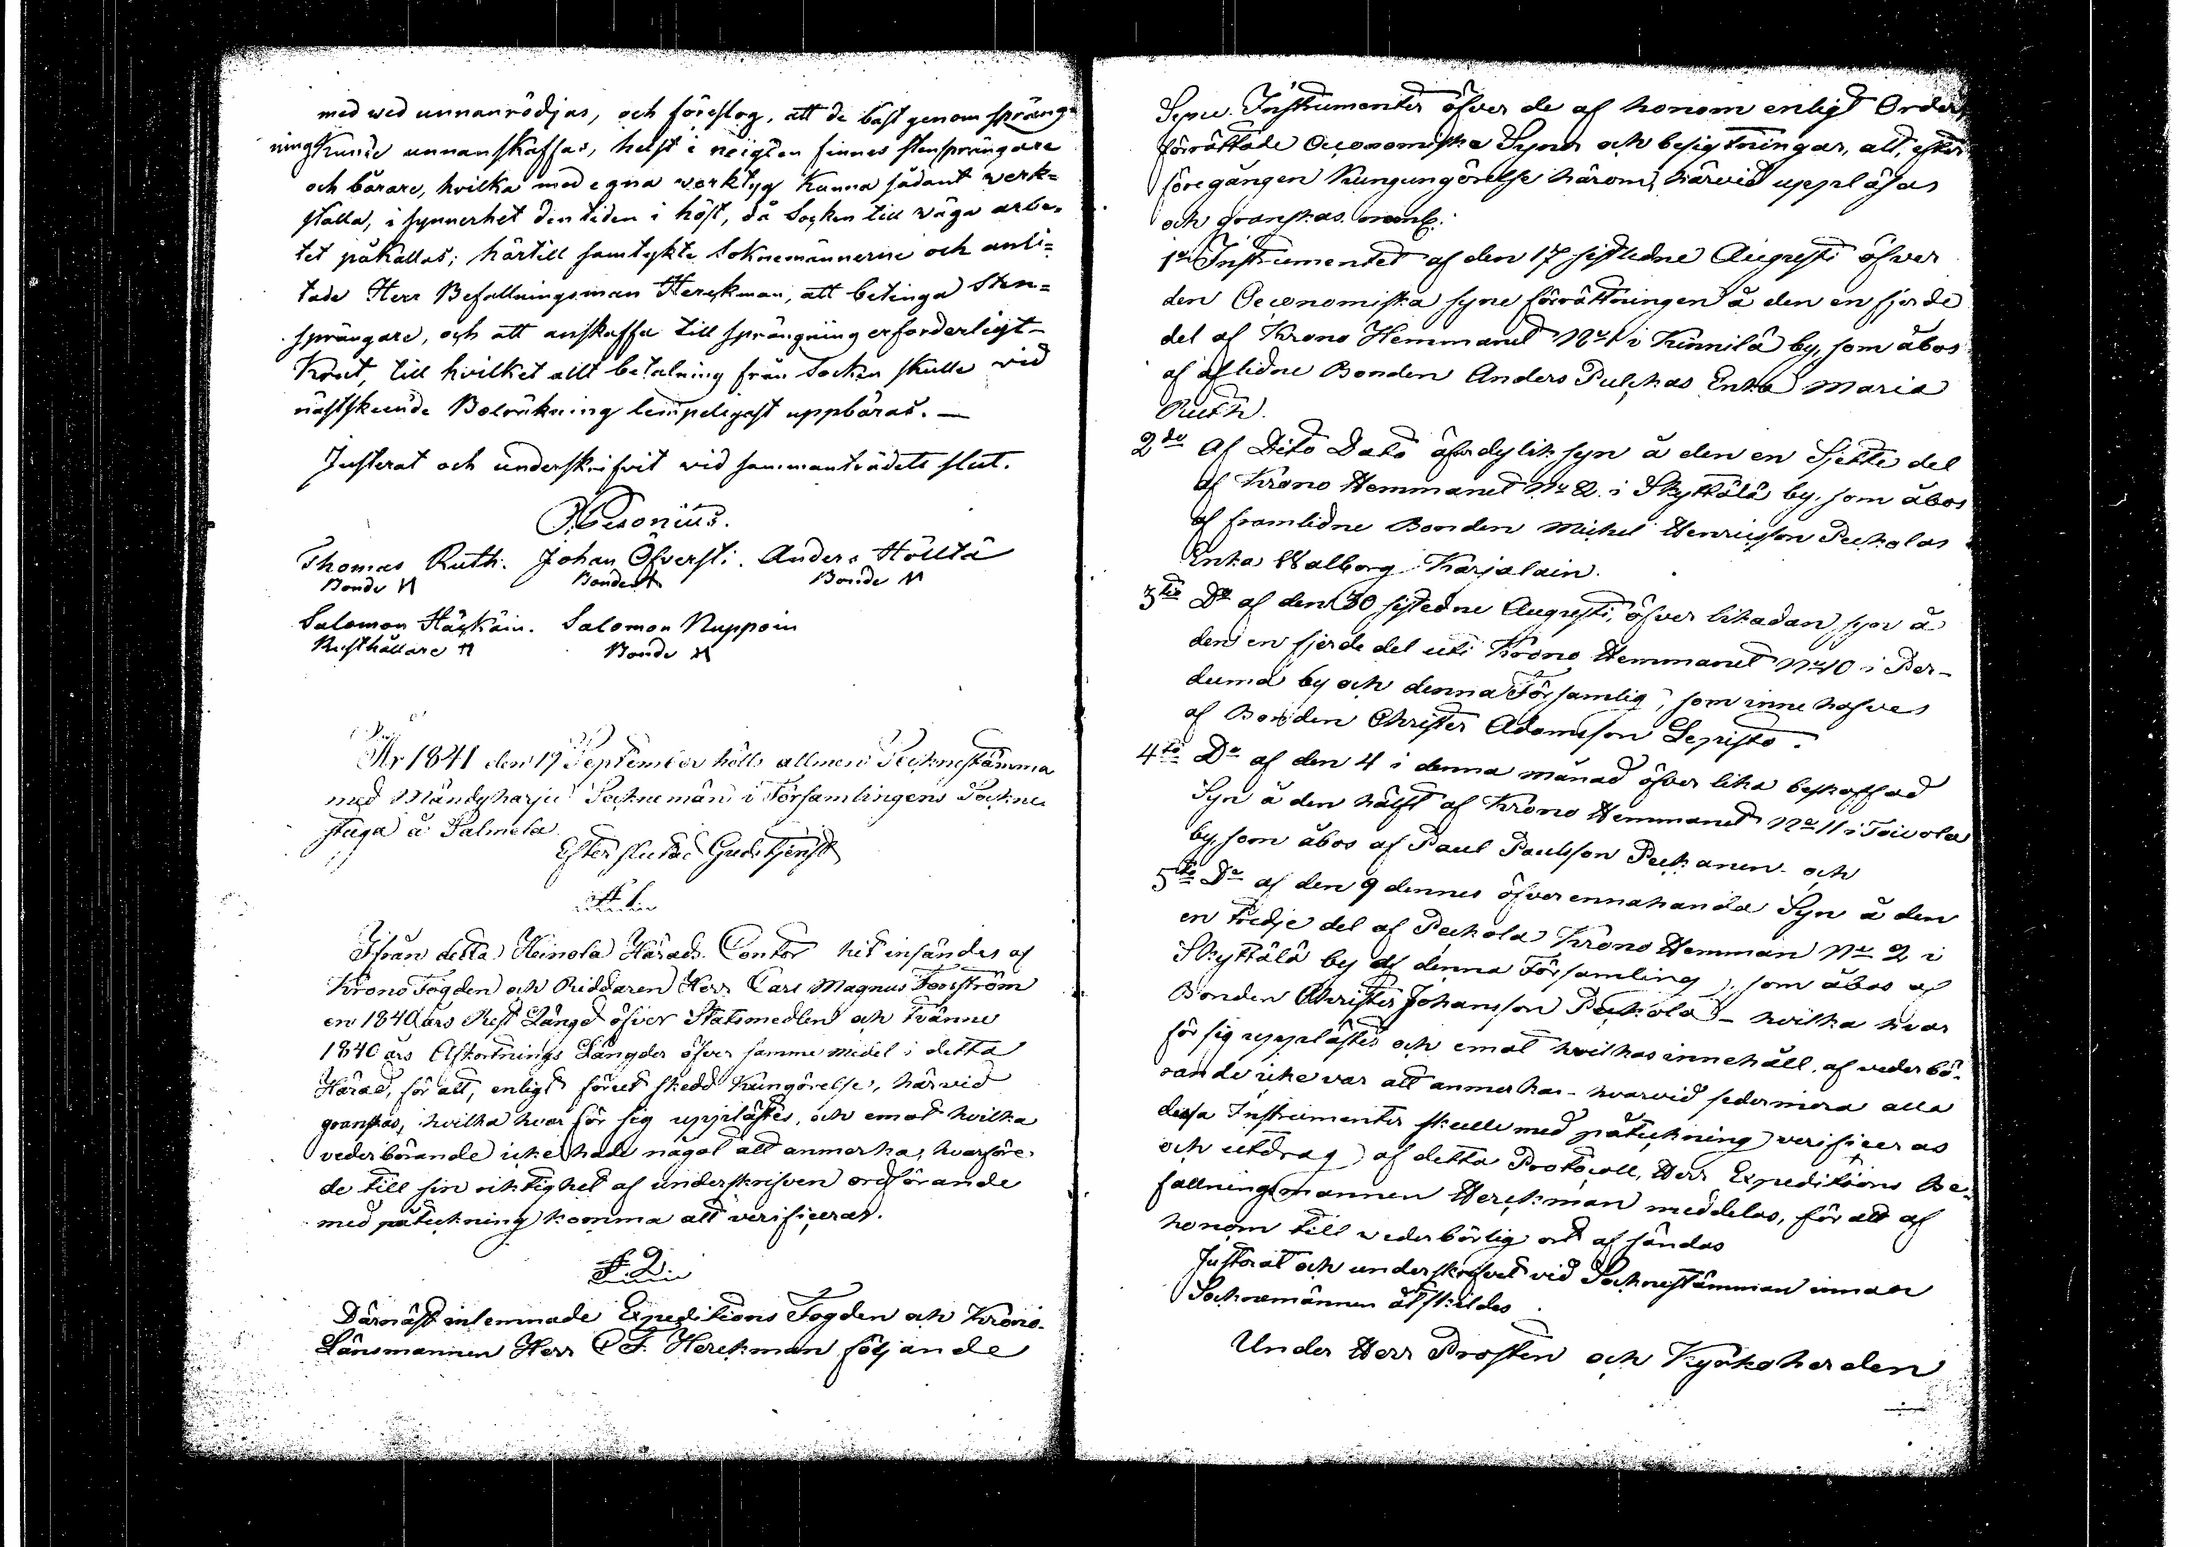 med wed unnanrödjas, och föreslog, att de bäst genom spräng-
ning kunde unnanskaffas, helst i neigden finnes stensprängare
och bärare, hvilka med egna verktyg kunna sådant werk-
ställa, i synnerhet den tiden i höst, då Socken till wäga arbe-
tet påkallas; härtill samtykte Soknemännerne och anli-
tade Herr Befallningsman Herckman, att betinga Sten-
sprängare, och att anskaffa till sprängning erforderligt
Krut, till hvilket allt betalning från Socken skulle wid
nästskeende Bolräkning lempeligast uppbäras. —
Justerat och underskrifvit wid sammanträdets slut.
Hesonius.
Thomas Ruth. Johan Öfversti. Anders Hölltä
Bonde Bonde Bonde
Salomon Häskäin. Salomon Nuppoin
Rusthållare Bonde
År 1841 den 19 September hölls allmen Socknestämma
med Mändyharju Socknemän i Församlingens Sockne
stuga å Salmela
Efter slutad Gudstjenst
§ 1.
Ifrån detta Heinola Härads Contor hit insändes af
Krono Fogden och Riddaren Herr Carl Magnus Forsström
en 1840 års Rest Längd öfver Statsmedlen och tvänne
1840 års Afkortnings Längder öfver samme medel i detta
Härad, för att, enligt förut skedd Kungörelse, härvid
granskas, hvilka hvar för sig upplästes, och emot hvilka
vederbörande icke hade något att anmerka, hvarföre
de till sin riktighet af underskrifven ordförande
med påteckning komma att verificeras.
§ 2.
Därnäst inlemnade Expeditions Fogden och Krono-
Länsmannen Herr C F. Herckman följande
Syne Instrumenter öfver de af honom enligt Order
förrättade Oeconomiska Syner och besigtningar, att, efter
föregången Kungungörelse härom, härvid uppläsas
och granskas neml:
1o Instrumentet af den 17 sistledne Augusti öfver
den Oeconomiska syne förrättningen å den en fjerde
del af Krono Hemmanet No 1 i Kinnilä by, som åbos
af aflidne Bonden Anders Pulkkas Enka Maria
Ruth.
2do Af Dito Dato öfver dylik syn å den en Sjette del
af Krono Hemmanet No 2. i Skyttälä by, som åbos
af framlidne Bonden Michel Henricsson Peckolas
Enka Walborg Karjalain.
3tio Do af den 30 sistledne Augusti, öfver likadan syn å
den en fjerde del uti Krono Hemmanet No 10 i Per-
dumä by och denna Församlig, som innehafves
af Bonden Christer Adamsson Lepistö.
4to Do af den 4 i denna månad öfver lika beskaffad
Syn å den hälft af Krono Hemmanet No 11 i Toivola
by, som åbos af Paul Paulsson Peckanen. och
5to Do af den 9 dennes öfver ennahanda Syn å den
en tredje del af Peckola Krono Hemman No 2 i
Skyttälä by af denna Församling, som åbos af
Bonden Christer Johansson Peckola - hvilka hvar
för sig upplästes och emot hvilkas innehåll, af vederbö-
rande icke var att anmerka - hvarvid sedermera alla
dessa Instrumenter skulle med påteckning verificeras
och utdrag af detta Protocoll, Herr Expeditions Be-
fallningsmannen Herckman meddelas, för att af
honom till wederbörlig ort af sändas
Justerat och underskrifvet vid Socknestämman innan
Socknemännen åtskildes.
Under Herr Prosten och Kyrkoherden